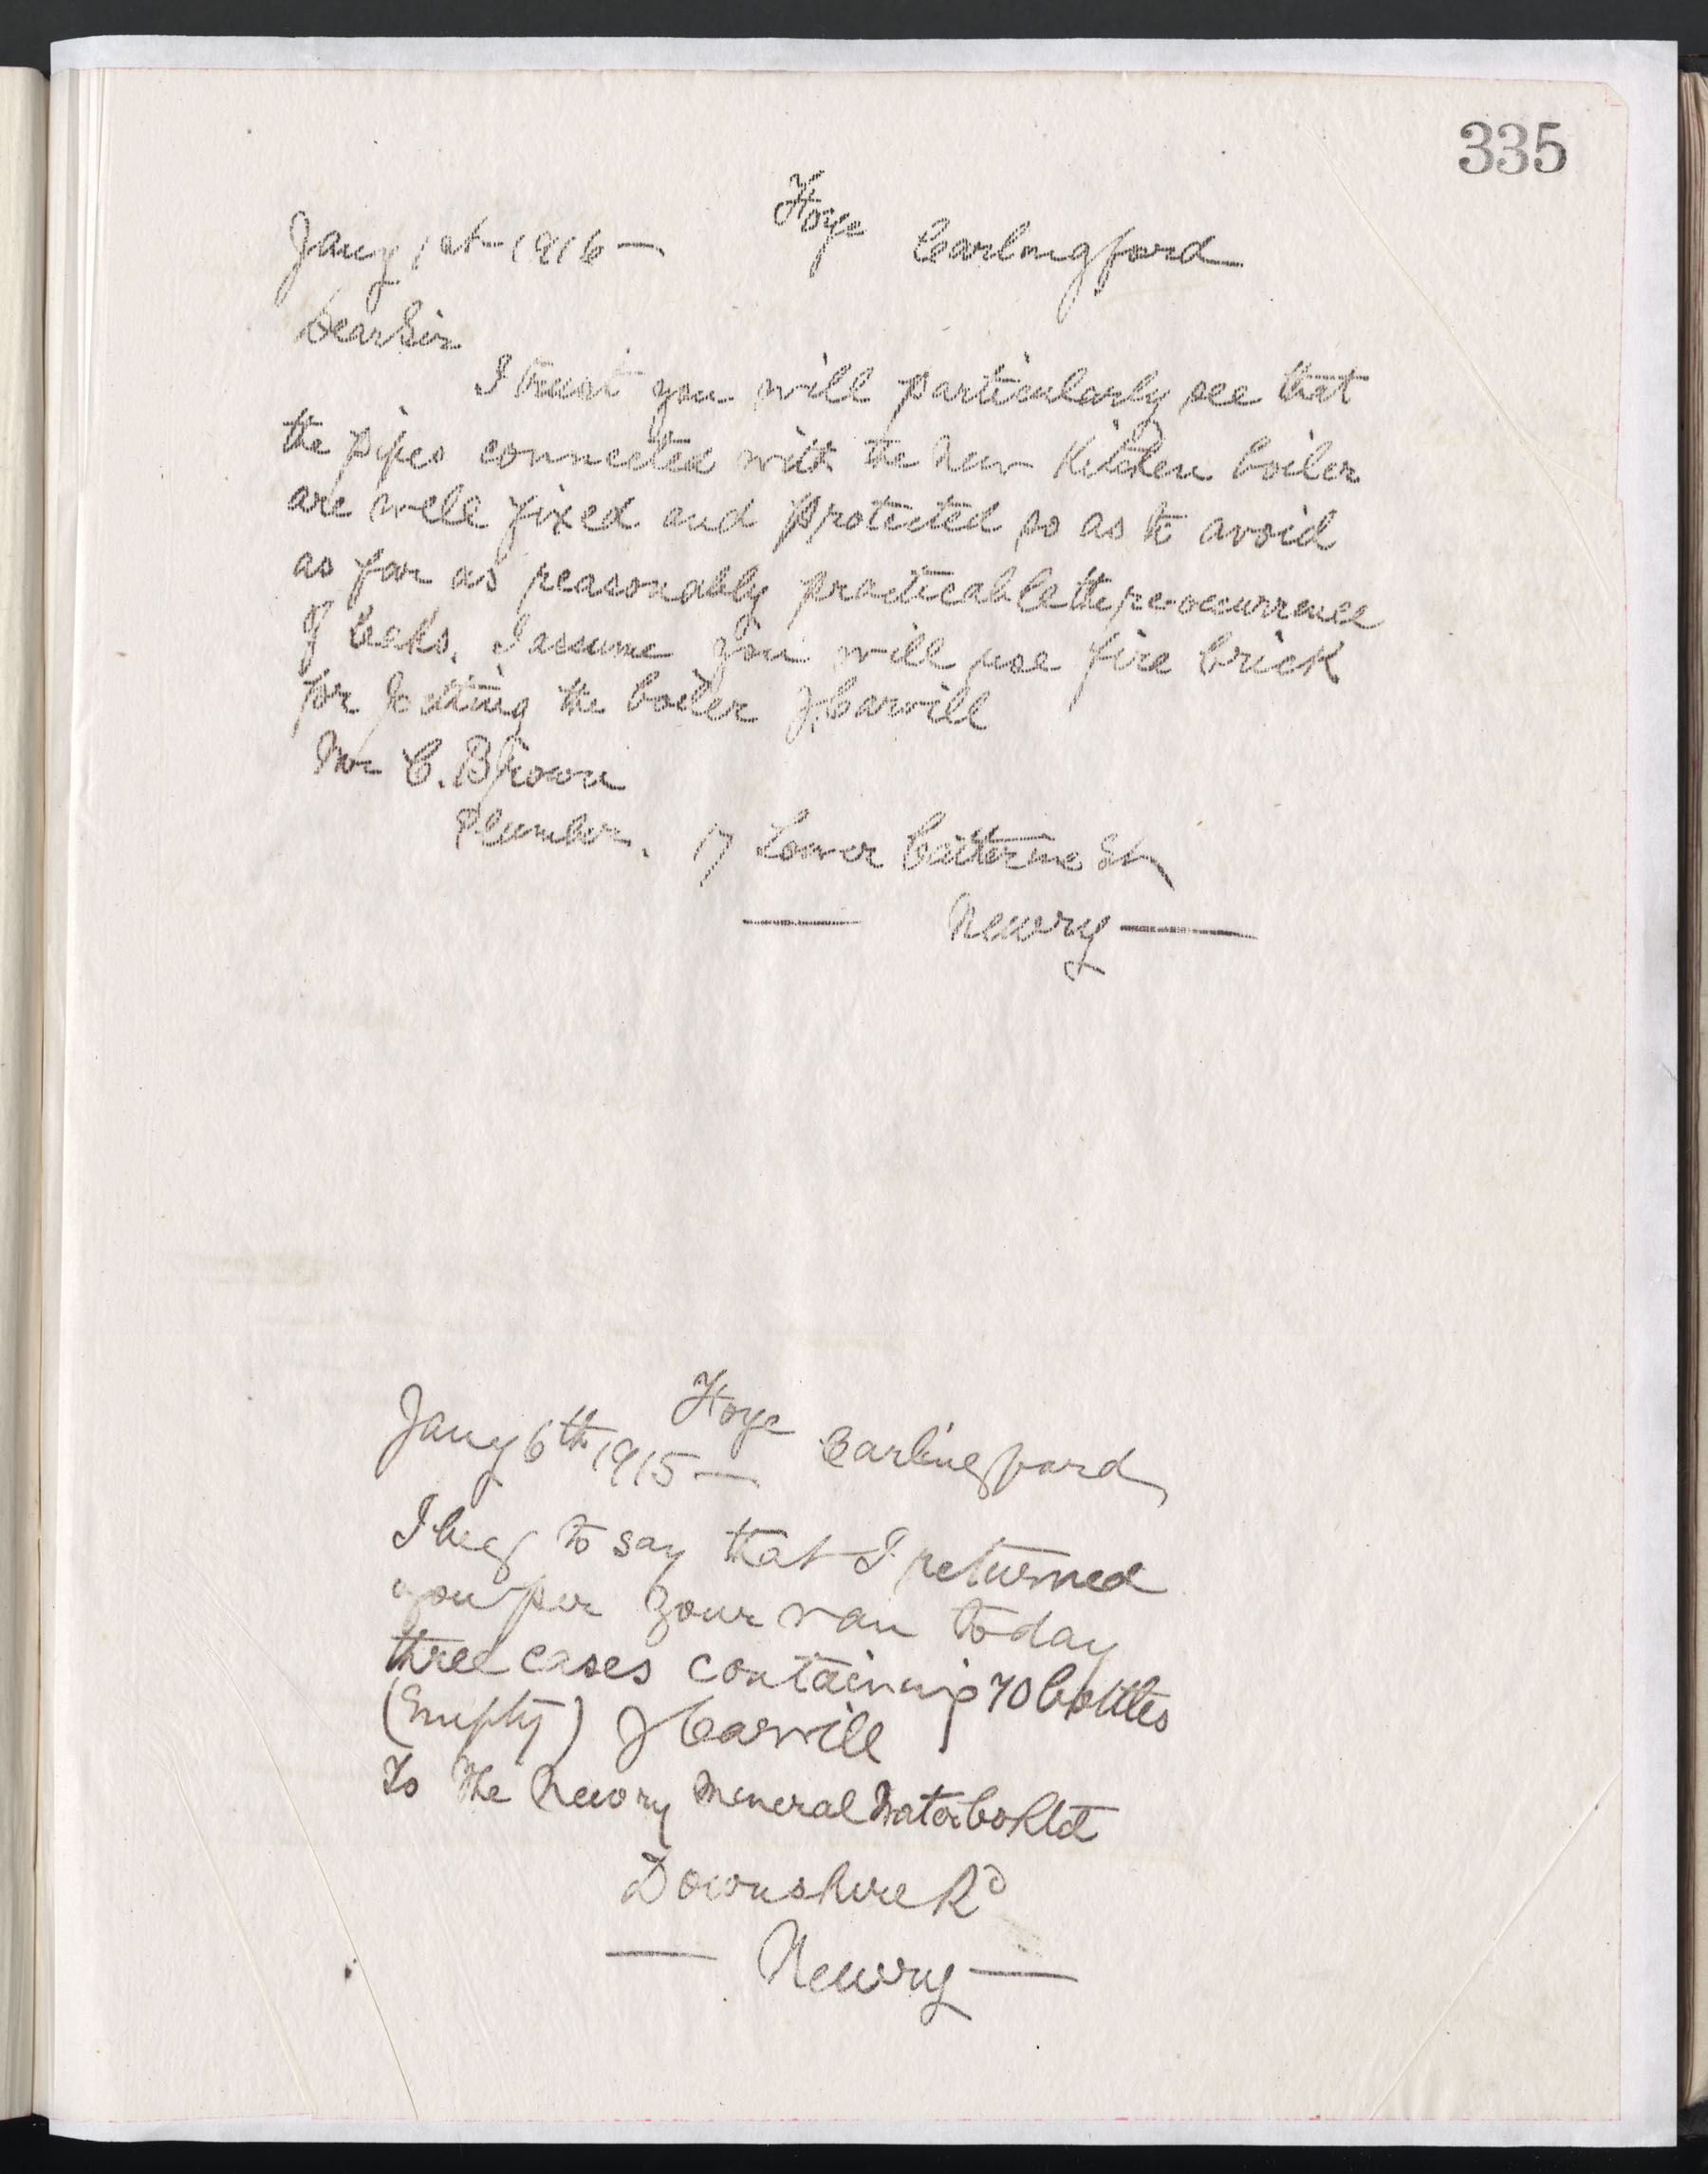 335
Jany 1st 1916 — Foye Carlingford
Dear Sir
I trust you will particularly see that
the pipes connected with the new Kitchen boiler
are well fixed and protected so as to avoid
as far as reasonably practicable the re-occurrence
of leaks. I assume you will use fire brick
for setting the boiler J Carvill
Mr C. Brown
Plumber. 17 Lower Catterine St
— Newry —
Jany 6th 1915 — Foye Carlingford
I beg to say that I returned
you per your van today
three cases containing 70 bottles
(Empty) J Carvill
To The Newry Mineral Water Co Ltd
Downshire Rd
— Newry —